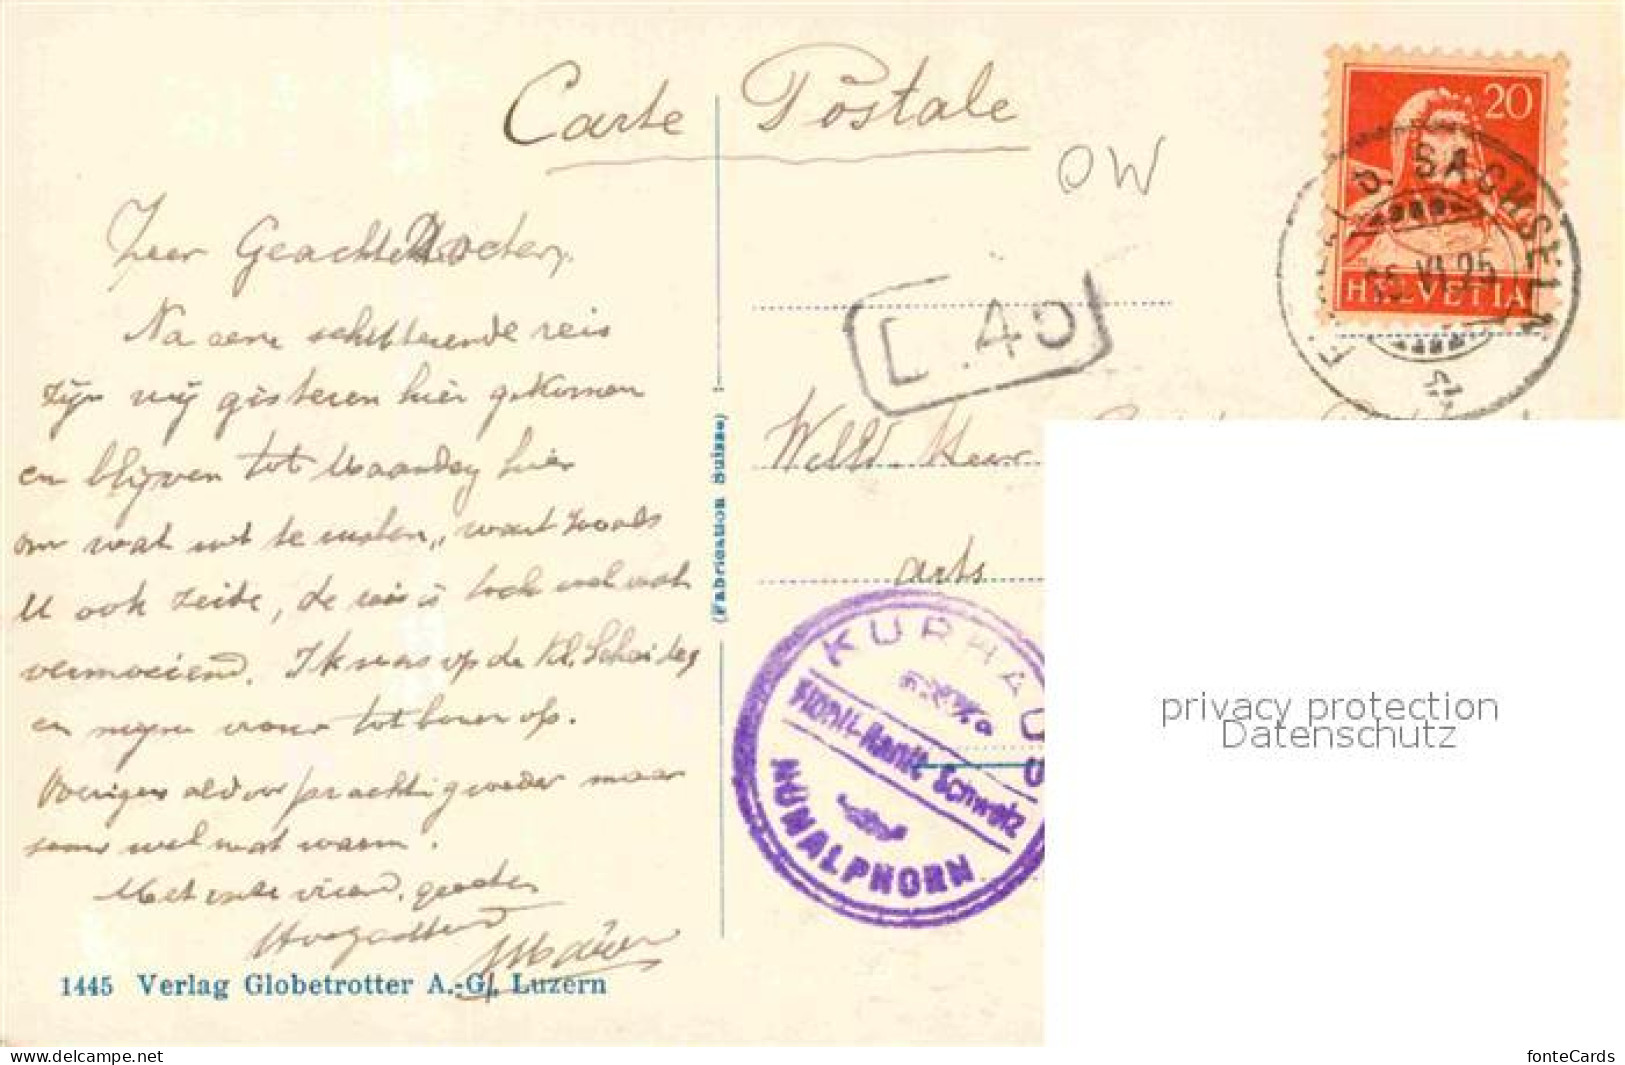 Carte Postale
OW
20
HELVETIA
SACHSELN
VI.25
40
Zeer Geachte Doctor,
Na een schitterende reis
zijn wij gisteren hier gekomen
en blijven tot Maandag hier
om wat uit te rusten, want zooals
U ook zeide, de reis is toch wel wat
vermoeiend. Ik was op de Kl. Scheideg
en mijn vrouw tot boven op.
Overigens alles prachtig weder maar
soms wel wat warm.
Met vele vriend. groeten
Hoogachtend
Heer
arts
(Fabrication Suisse)
KURHAUS
Schweiz
NÜNALPHORN
1445 Verlag Globetrotter A.-G. Luzern
privacy protection
Datenschutz
www.delcampe.net
fonteCards